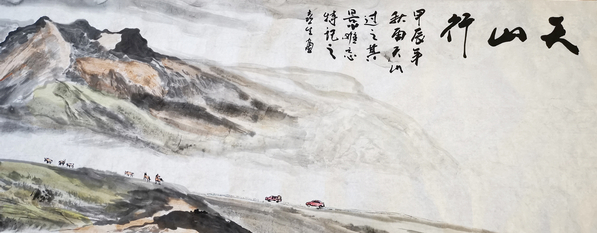 天山行
甲辰年
秋南天山
过之其
景难忘
特记之
生画